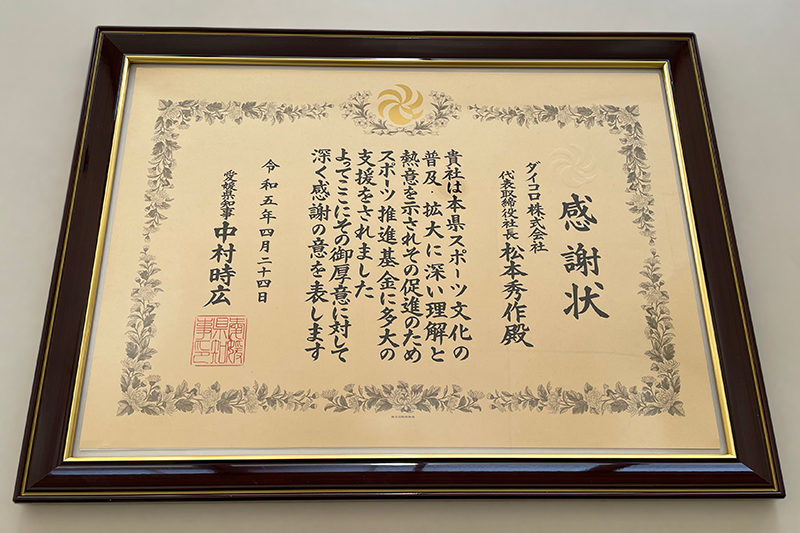 感謝状
ダイコロ株式会社
代表取締役社長 松本秀作殿
貴社は本県スポーツ文化の
普及・拡大に深い理解と
熱意を示されその促進のため
スポーツ推進基金に多大の
支援をされました
よってここにその御厚意に対して
深く感謝の意を表します
令和五年四月二十四日
愛媛県知事 中村時広
愛媛県知事印